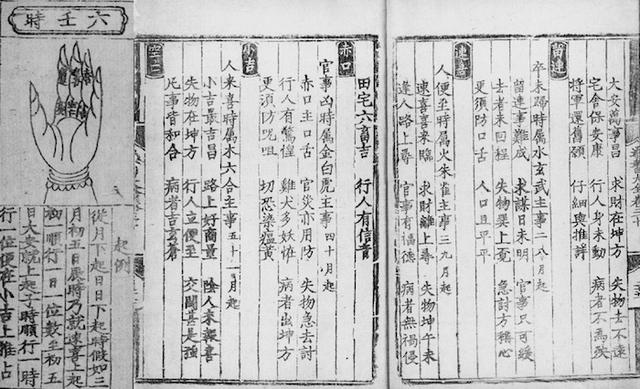 大安萬事昌 求財在坤方 失物去不遠
宅舍保安康 行人身未動 病者不為殃
將軍還舊願 仔細與推詳
留連
卒未歸時屬水玄武主事二八月起
留連事難成 求謀日未明 官事只可緩
去者未回程 失物巽上覓 急討方稱心
更須防口舌 人口且平平
速喜
人便至時屬火朱雀主事三九月起
速喜喜來臨 求財離上尋 失物坤午未
逢人路上尋 官事有福德 病者無禍侵
田宅六畜吉 行人有信音
赤口
官事凶時屬金白虎主事四十月起
赤口主口舌 官災亦用防 失物急去討
行人有驚惶 雞犬多妖怪 病者出坤方
更須防咒咀 切恐染瘟黃
小吉
人來喜時屬木六合主事五十一月起
小吉最吉昌 路上好商量 陰人來報喜
失物在坤方 行人立便至 交關甚是強
凡事皆和合 病者吉
空亡
六壬時
起例
從月下起日日下起時假如三
月初五日辰時乃就速喜上起
初一順行一日一位數至初五
日大安就上起子時順行一時
行一位便在小吉上推占